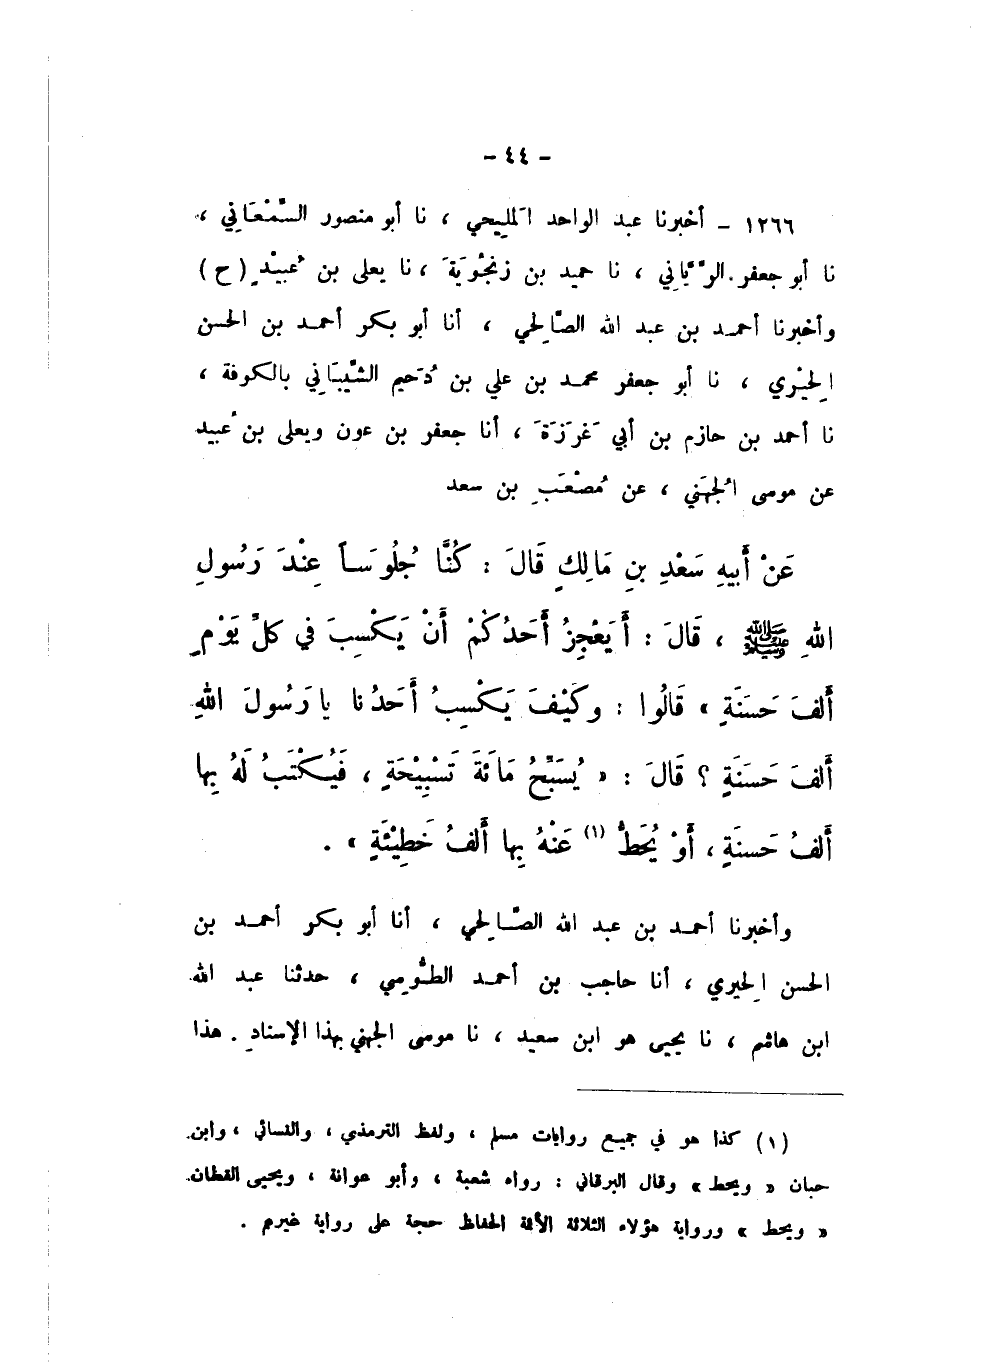 - ٤٤ -
١٢٦٦ - أخبرنا عبد الواحد المَلِيحي ، نا أبو منصور السَّمْعَاني ،
نا أبو جعفر الرَّيَّاني ، نا حميد بن زَنجُوَيَةَ ، نا يعلى بن عُبَيْدٍ (ح)
وأخبرنا أحمد بن عبد الله الصَّالِحي ، أنا أبو بكر أحمد بن الحسن
الحِيْري ، نا أبو جعفر محمد بن علي بن دُحَيم الشَّيبَاني بالكوفة ،
نا أحمد بن حازم بن أبي غَرَزَةَ ، أنا جعفر بن عون ويعلى بن عُبيد
عن موسى الجُهَني ، عن مُصْعَبِ بن سعد
عَنْ أَبيهِ سَعْدِ بنِ مَالِكٍ قَالَ : كُنَّا جُلُوسَاً عِنْدَ رَسُولِ
اللهِ ﷺ ، قَالَ : أَيَعْجِزُ أَحَدُكُمْ أَنْ يَكْسِبَ في كلِّ يَوْمٍ
أَلفَ حَسَنَةٍ » قَالُوا : وكَيْفَ يَكْسِبُ أَحَدُنا يا رَسُولَ اللهِ
أَلفَ حَسَنَةٍ ؟ قَالَ : « يُسَبِّحُ مَائَةَ تَسْبِيْحَةٍ ، فَيُكْتَبُ لَهُ بِها
أَلفُ حَسنَةٍ ، أَوْ يُحَطُّ (١) عَنْهُ بِها أَلفُ خَطِيْئَةٍ » .
وأخبرنا أحمد بن عبد الله الصَّالِحي ، أنا أبو بكر أحمد بن
الحسن الحِيري ، أنا حاجب بن أحمد الطُّومي ، حدثنا عبد الله
ابن هاشم ، نا يحيى هو ابن سعيد ، نا موسى الجهني بهذا الإسنادِ . هذا
(١) كذا هو في جميع روايات مسلم ، ولفظ الترمذي ، والنسائي ، وابن
حبان « ويحط » وقال البرقاني : رواه شعبة ، وأبو عوانة ، ويحيى القطان
« ويحط » ورواية هؤلاء الثلاثة الأئمة الحفاظ حجة على رواية غيرهم .